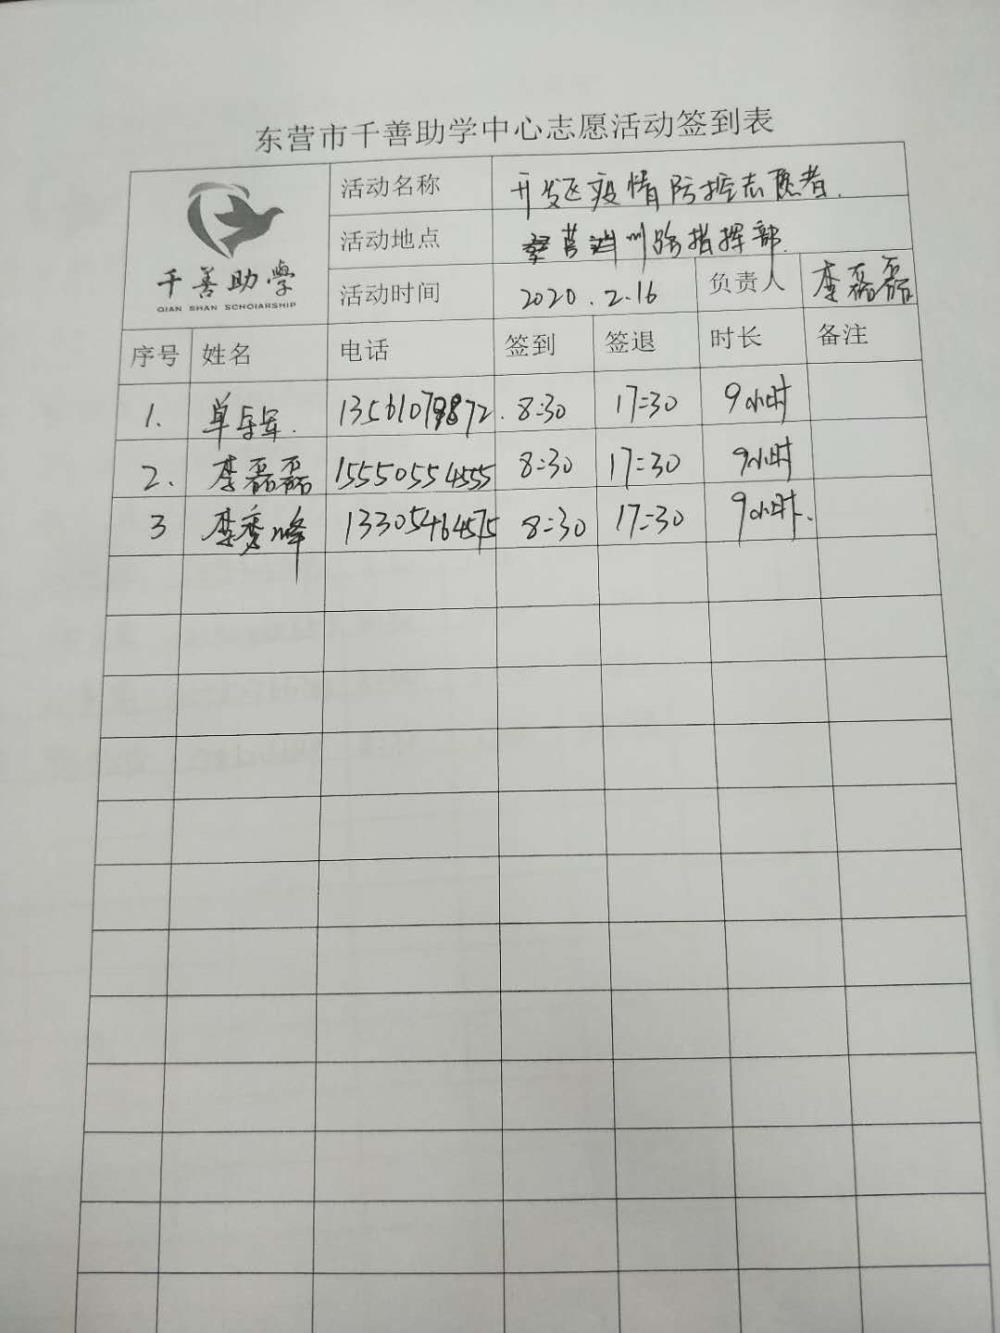 东营市千善助学中心志愿活动签到表
千善助学
QIAN SHAN SCHOIARSHIP
活动名称 开发区疫情防控志愿者.
活动地点 路指挥部.
活动时间 2020.2.16 负责人 李磊磊
序号 姓名 电话 签到 签退 时长 备注
1. 单 8:30 17:30 9小时
2. 李磊磊 15550554555 8:30 17:30 9小时
3 李秀峰 13305464575 8:30 17:30 9小时.